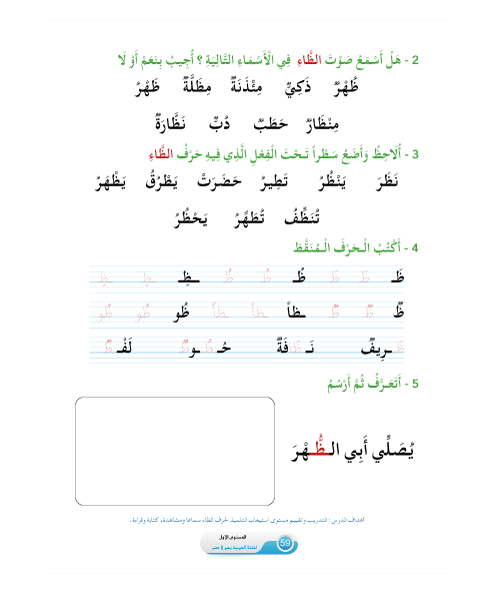 2 - هَلْ أَسْمَعُ صَوْتَ الظَّاءِ فِي الْأَسْمَاءِ التَّالِيَةِ ؟ أُجِيبُ بِنَعَمْ أَوْ لَا
ظُهْرٌ ذَكِيٌّ مِئْذَنَةٌ مِظَلَّةٌ ظَهْرٌ
مِنْظَارٌ حَطَبٌ دُبٌّ نَظَّارَةٌ
3 - أُلَاحِظُ وَأَضَعُ سَطْراً تَـحْتَ الْفِعْلِ الَّذِي فِيهِ حَرْفُ الظَّاءِ
نَظَرَ يَنْظُرُ تَطِيرُ حَضَرَتْ يَطْرُقُ يَظْهَرُ
تُنَظِّفُ تُطَهِّرُ يَحْظُرُ
4 - أَكْتُبُ الْـحَرْفَ الْـمُنَقَّطَ
ظَـ ظَـ ظَـ ظُـ ظُـ ظُـ ـظِـ ـظِـ ـظِـ
ظٌ ظٌ ظٌ ـظاً ـظاً ـظاً ظُو ظُو ظُو
ظَـرِيفٌ نَـظَـافَةٌ حُـظُـوظٌ لَفْـظٌ
5 - أَتَعَرَّفُ ثُمَّ أَرْسُمُ
يُصَلِّي أَبِي الـظُّـهْرَ
أهداف الدرس : التدريب وتقييم مستوى استيعاب التلميذ لحرف الظاء سماعا ومشاهدة، كتابة وقراءة.
المستوى الأول
59